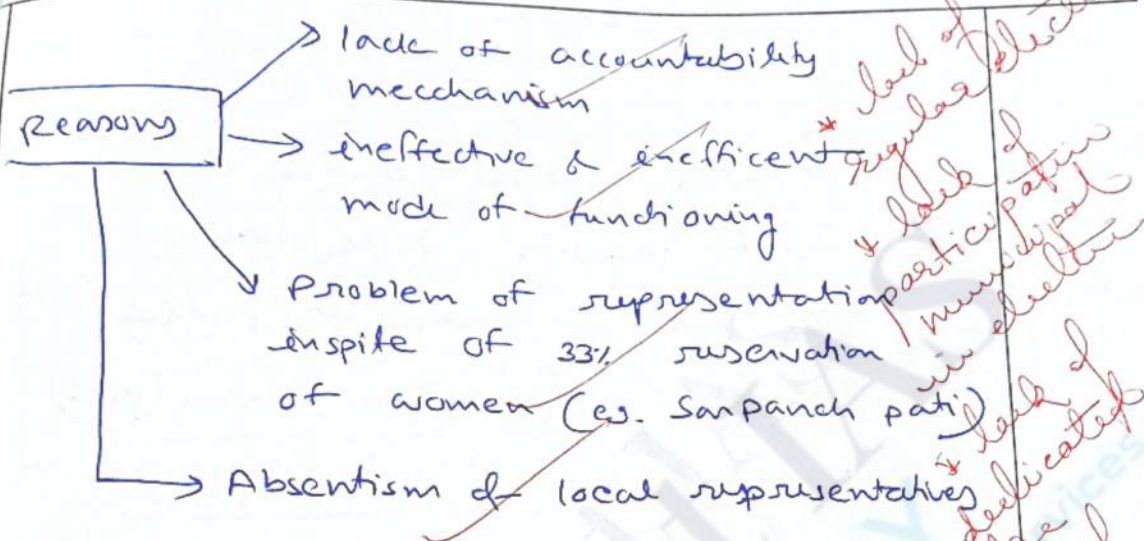 Reasons
lack of accountability
mecchanism
ineffective & inefficent
mode of functioning
Problem of representation
inspite of 33% reservation
of women (eg. Sarpanch pati)
Absentism of local representatives
* lack of
regular
* lack of
participation
municipal
in election
* lack of
dedicated
IAS